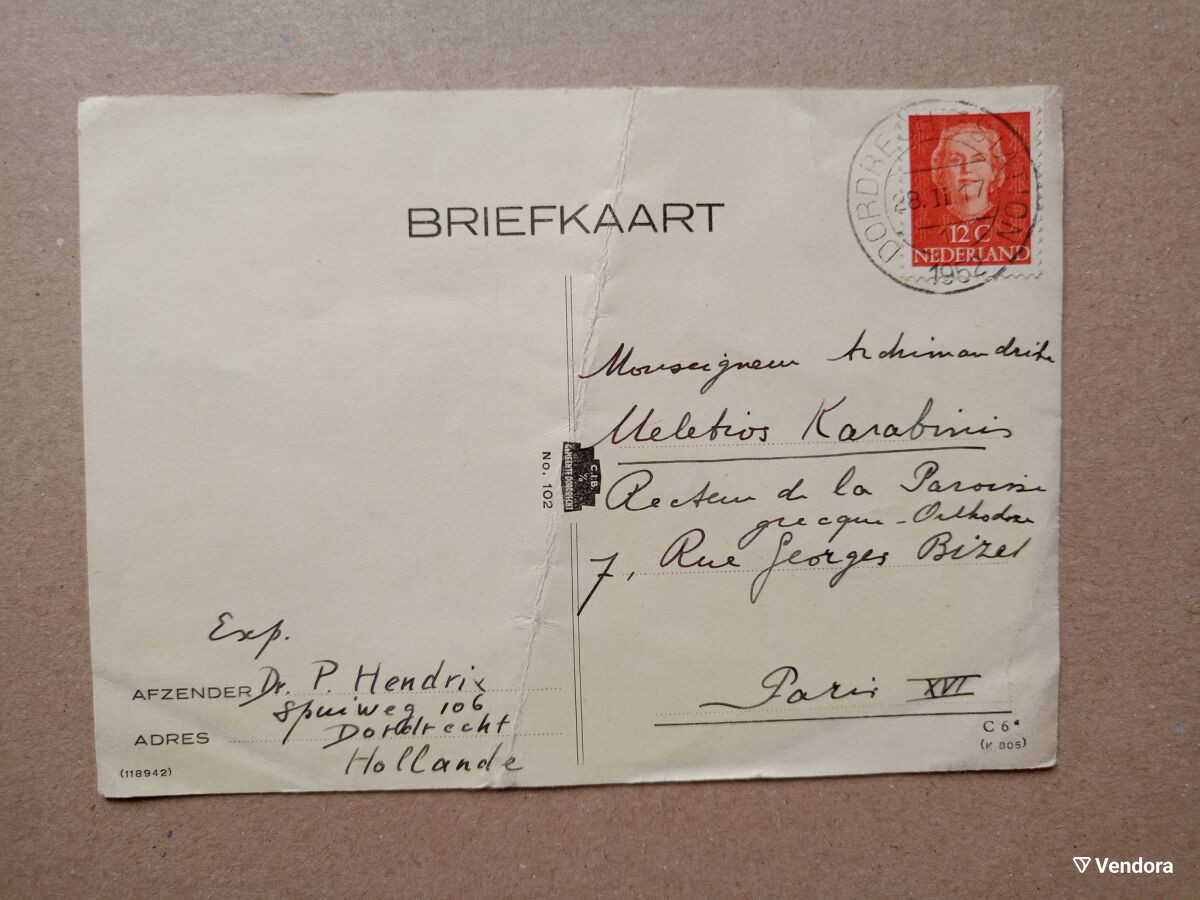 BRIEFKAART
DORDRECHT-STATION
28.II 17
1952
12 C
NEDERLAND
Monseigneur Archimandrite
Meletios Karabinis
Recteur de la Paroisse
grecque-Orthodoxe
7, Rue Georges Bizet
Paris XVI
No. 102
C.I.B.
GEMEENTE DORDRECHT
Exp.
AFZENDER Dr. P. Hendrix
Spuiweg 106
ADRES Dordrecht
Hollande
(118942)
C 6⁴
(K 805)
Vendora